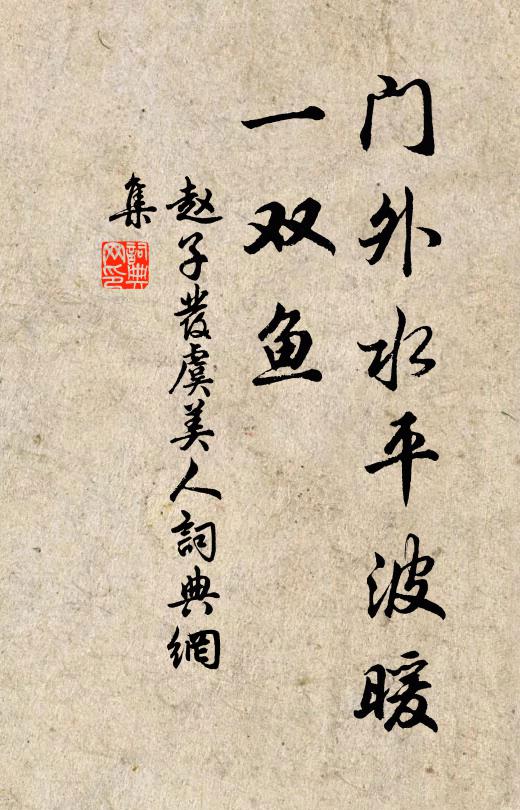 门外水平波暖
一双鱼
赵子發虞美人詞典網
集
詞典网印